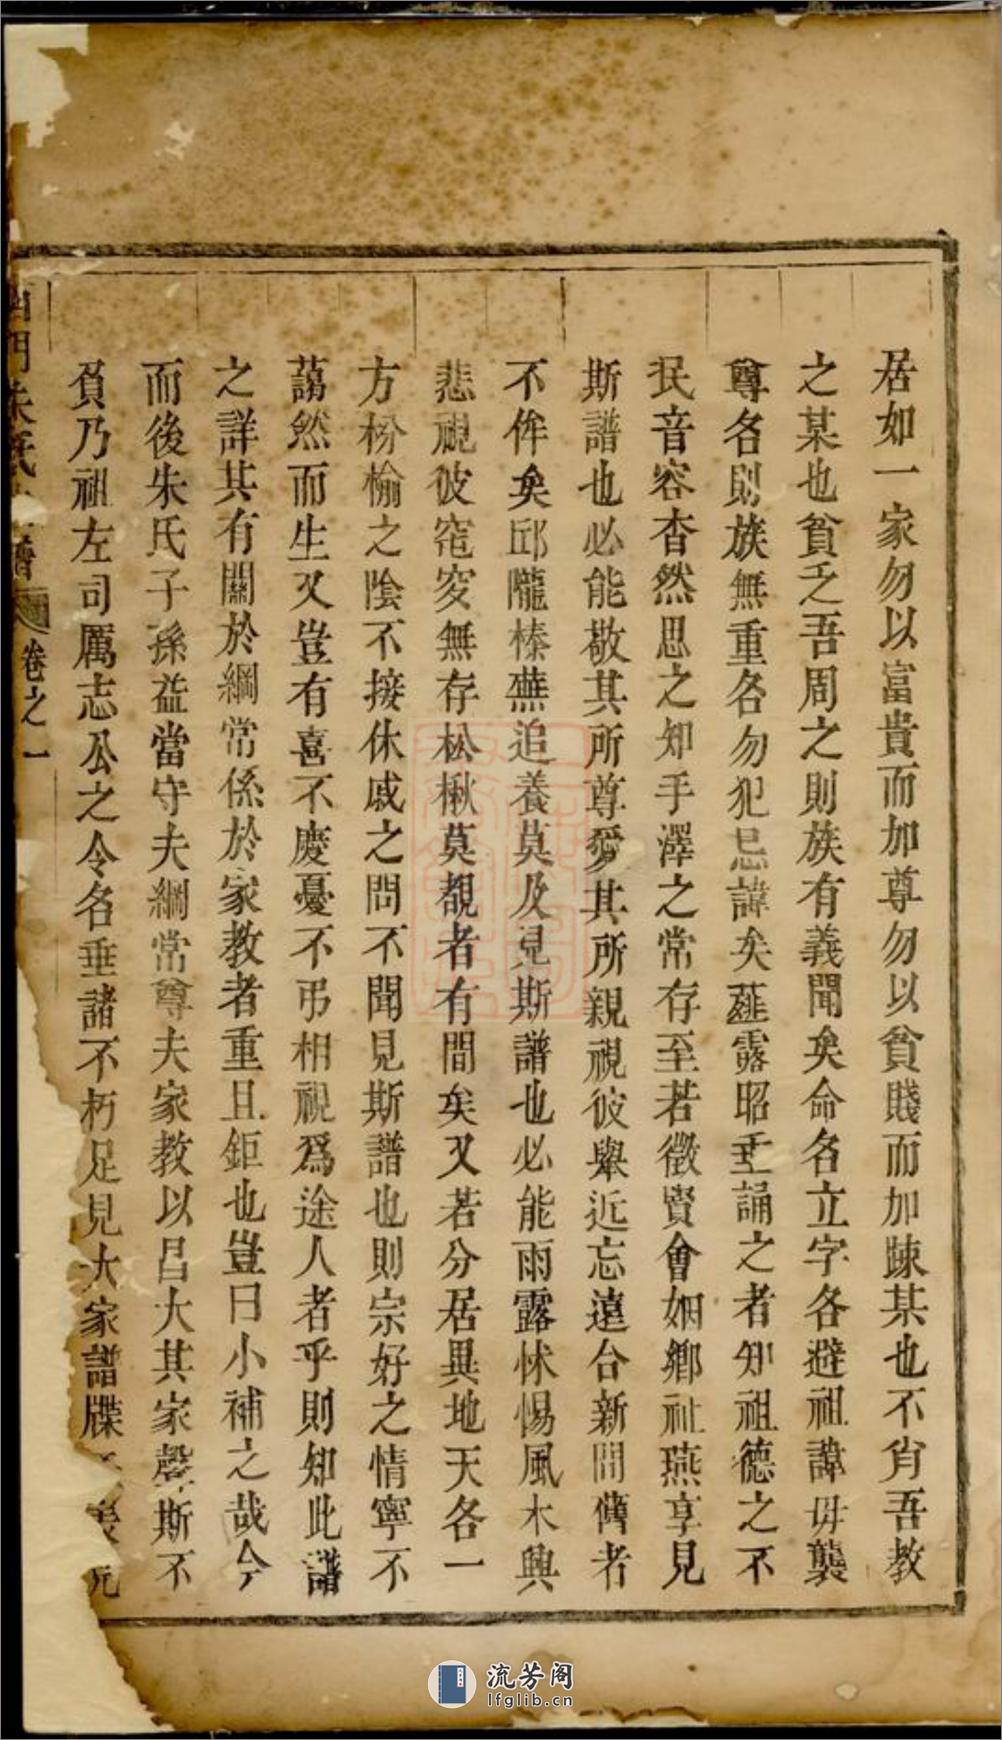 居如一家勿以富貴而加尊勿以貧賤而加踈某也不肖吾教
之某也貧乏吾周之則族有義聞矣命名立字各避祖諱毋襲
尊名則族無重名勿犯忌諱矣薤露昭垂誦之者知祖德之不
民音容杳然思之知手澤之常存至若徵賢會姻鄉祉燕享見
斯譜也必能敬其所尊愛其所親視彼舉近忘遠台新間舊者
不侔矣邱隴榛蕪追養莫及見斯譜也必能雨露怵惕風木興
悲視彼窀穸無存松楸莫覩者有間矣又若分居異地天各一
方枌榆之陰不接休戚之問不聞見斯譜也則宗好之情寧不
藹然而生又豈有喜不慶憂不弔相視爲途人者乎則知此譜
之詳其有關於綱常係於家教者重且鉅也豈曰小補之哉今
而後朱氏子孫益當守夫綱常尊夫家教以昌大其家聲斯不
負乃祖左司厲志公之令名垂諸不朽足見大家譜牒
門朱氏 譜 卷之一
流芳阁
lfglib.cn